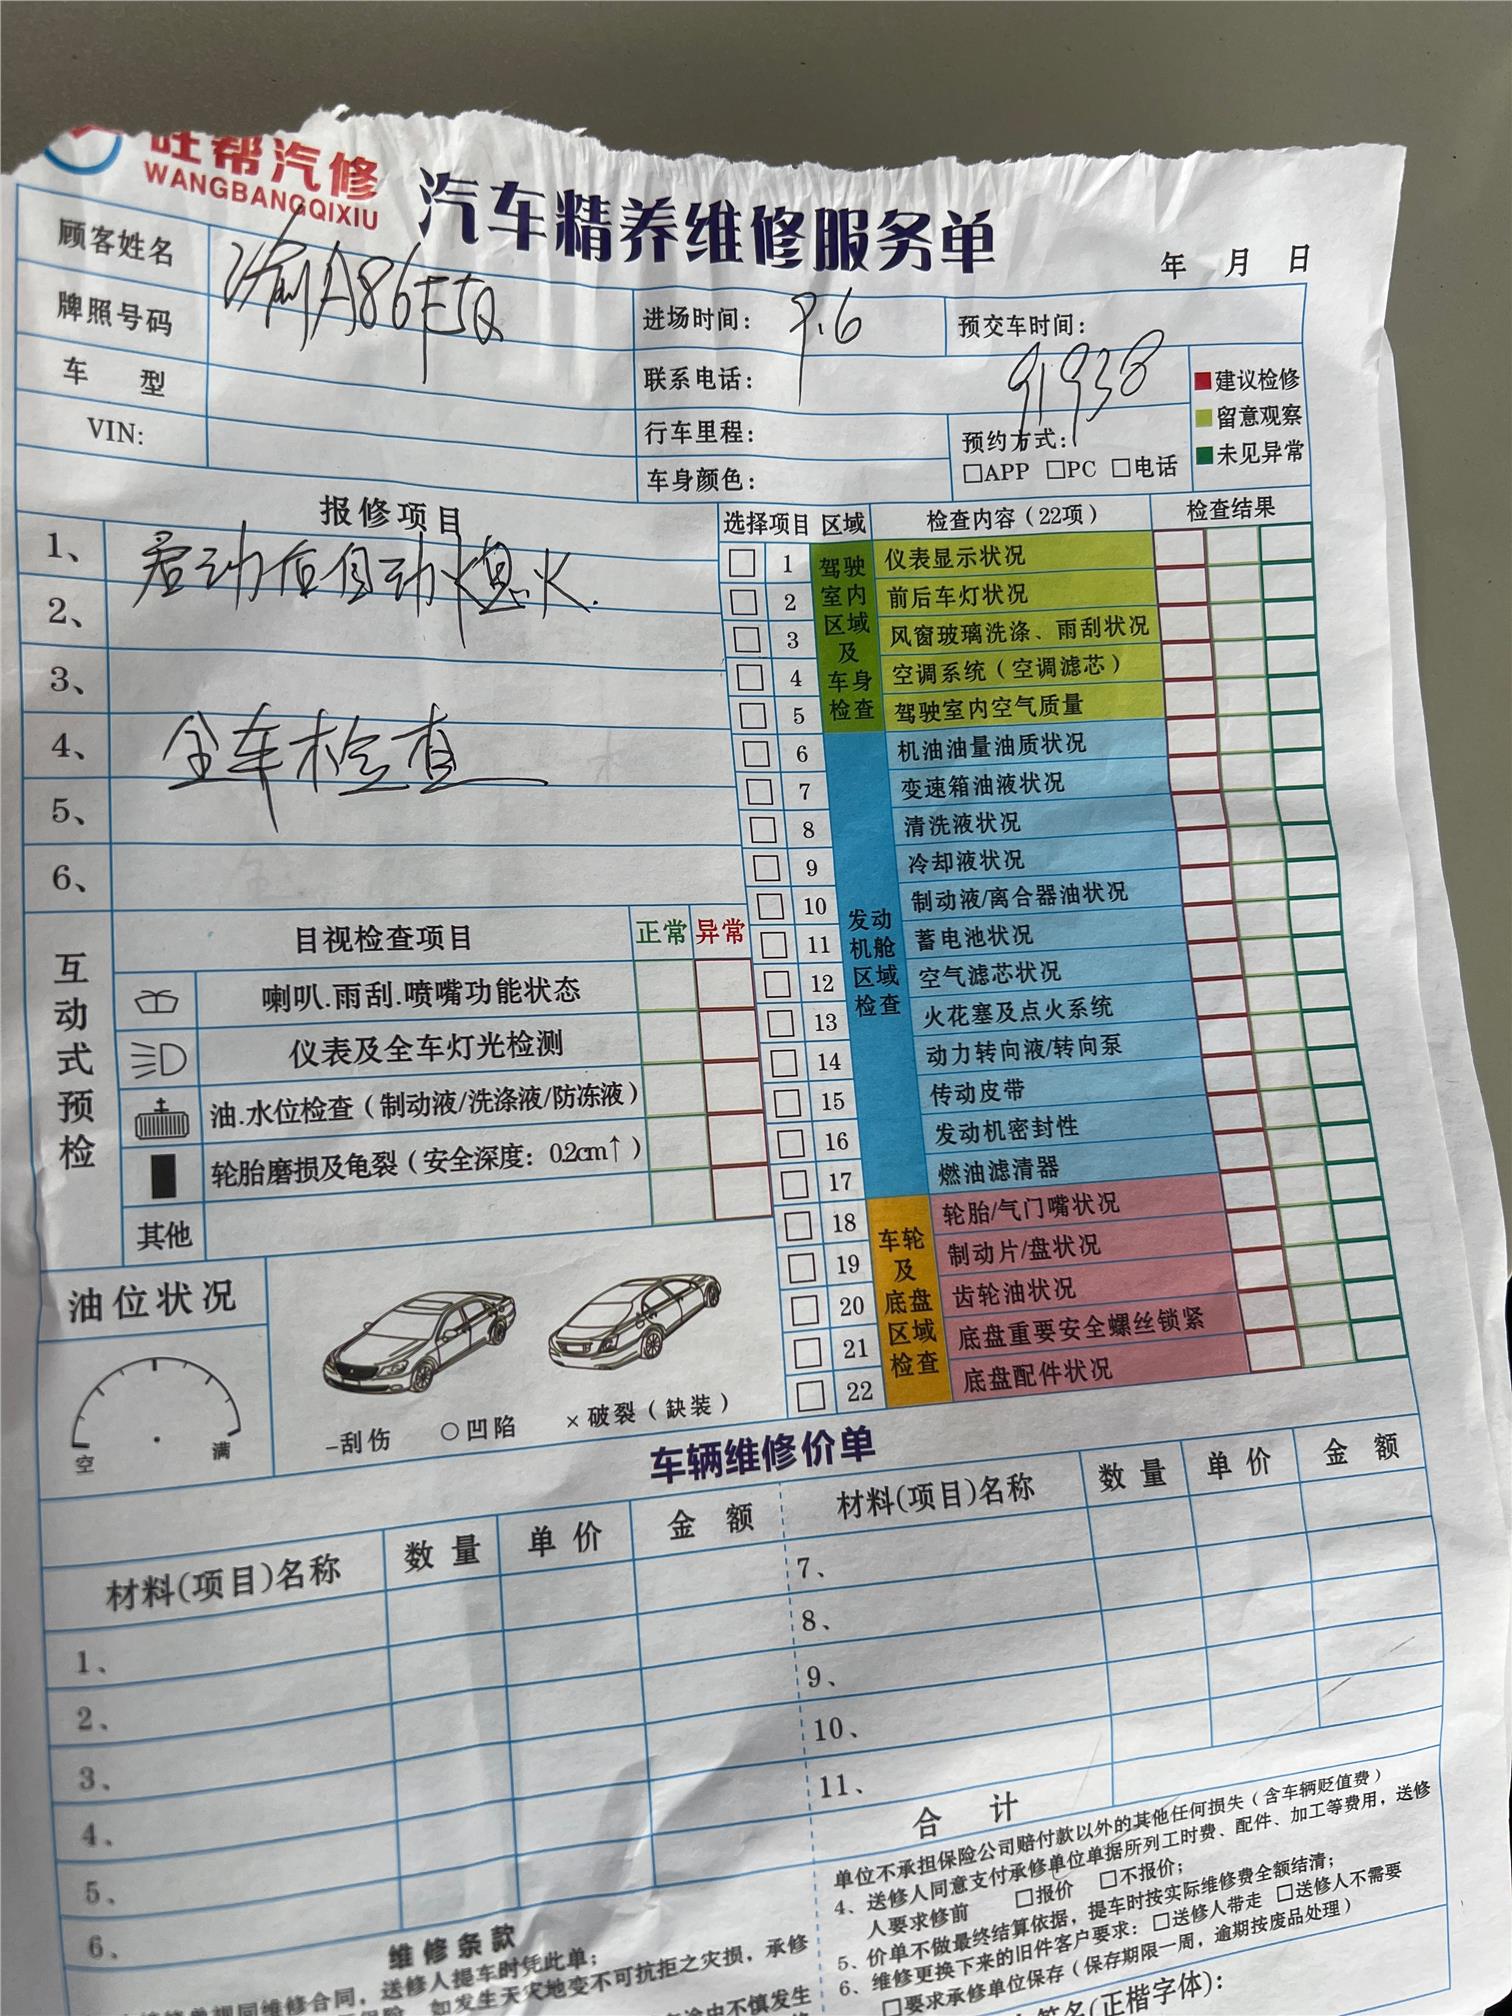 旺帮汽修
WANGBANGQIXIU
汽车精养维修服务单
年 月 日
顾客姓名
牌照号码 渝A86F5Q
进场时间: 9.6
预交车时间:
车 型
联系电话:
91938
VIN:
行车里程:
预约方式:
□APP □PC □电话
车身颜色:
建议检修
留意观察
未见异常
报修项目
1、 启动后自动熄火.
2、
3、
4、 全车检查
5、
6、
选择项目 区域 检查内容(22项) 检查结果
驾驶室内区域及车身检查
1 仪表显示状况
2 前后车灯状况
3 风窗玻璃洗涤、雨刮状况
4 空调系统(空调滤芯)
5 驾驶室内空气质量
发动机舱区域检查
6 机油油量油质状况
7 变速箱油液状况
8 清洗液状况
9 冷却液状况
10 制动液/离合器油状况
11 蓄电池状况
12 空气滤芯状况
13 火花塞及点火系统
14 动力转向液/转向泵
15 传动皮带
16 发动机密封性
17 燃油滤清器
车轮及底盘区域检查
18 轮胎/气门嘴状况
19 制动片/盘状况
20 齿轮油状况
21 底盘重要安全螺丝锁紧
22 底盘配件状况
互动式预检
目视检查项目 正常 异常
喇叭.雨刮.喷嘴功能状态
仪表及全车灯光检测
油.水位检查(制动液/洗涤液/防冻液)
轮胎磨损及龟裂(安全深度:0.2cm↑)
其他
油位状况
空 满
-刮伤 ○凹陷 ×破裂(缺装)
车辆维修价单
材料(项目)名称 数量 单价 金额
材料(项目)名称 数量 单价 金额
1、
2、
3、
4、
5、
6、
7、
8、
9、
10、
11、
合 计
维修条款
送修人提车时凭此单;
如发生天灾地变不可抗拒之灾损,承修
单位不承担保险公司赔付款以外的其他任何损失(含车辆贬值费)
4、送修人同意支付承修单位单据所列工时费、配件、加工等费用,送修
人要求修前 □报价 □不报价;
5、价单不做最终结算依据,提车时按实际维修费全额结清;
6、维修更换下来的旧件客户要求:□送修人带走 □送修人不需要
□要求承修单位保存(保存期限一周,逾期按废品处理)
签名(正楷字体):